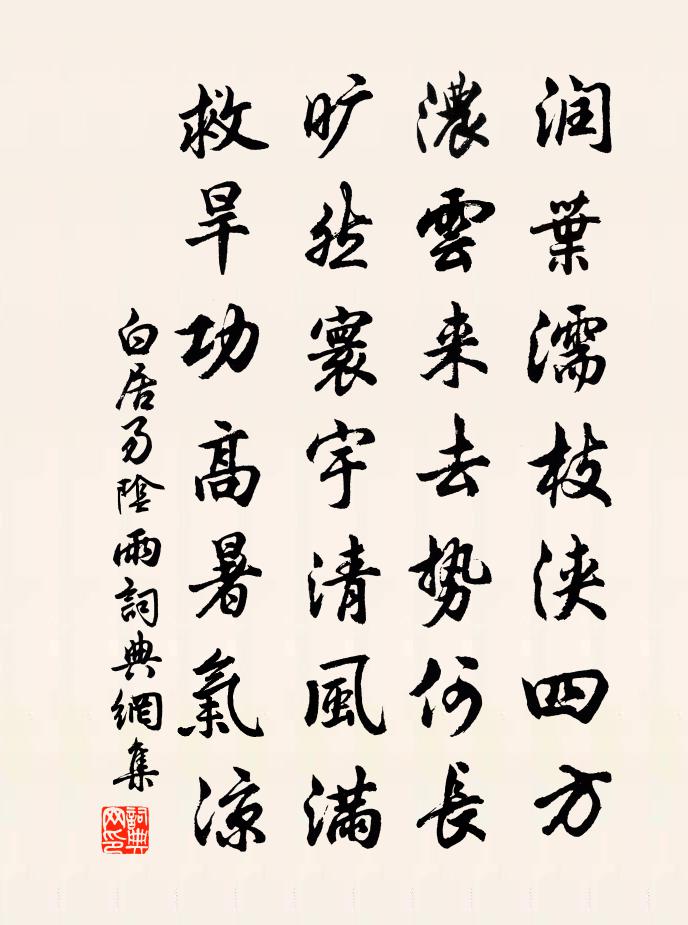 润葉濡枝浹四方
濃雲来去勢何長
旷然寰宇清風滿
救旱功高暑氣凉
白居易陰雨詞典網集
詞典網印